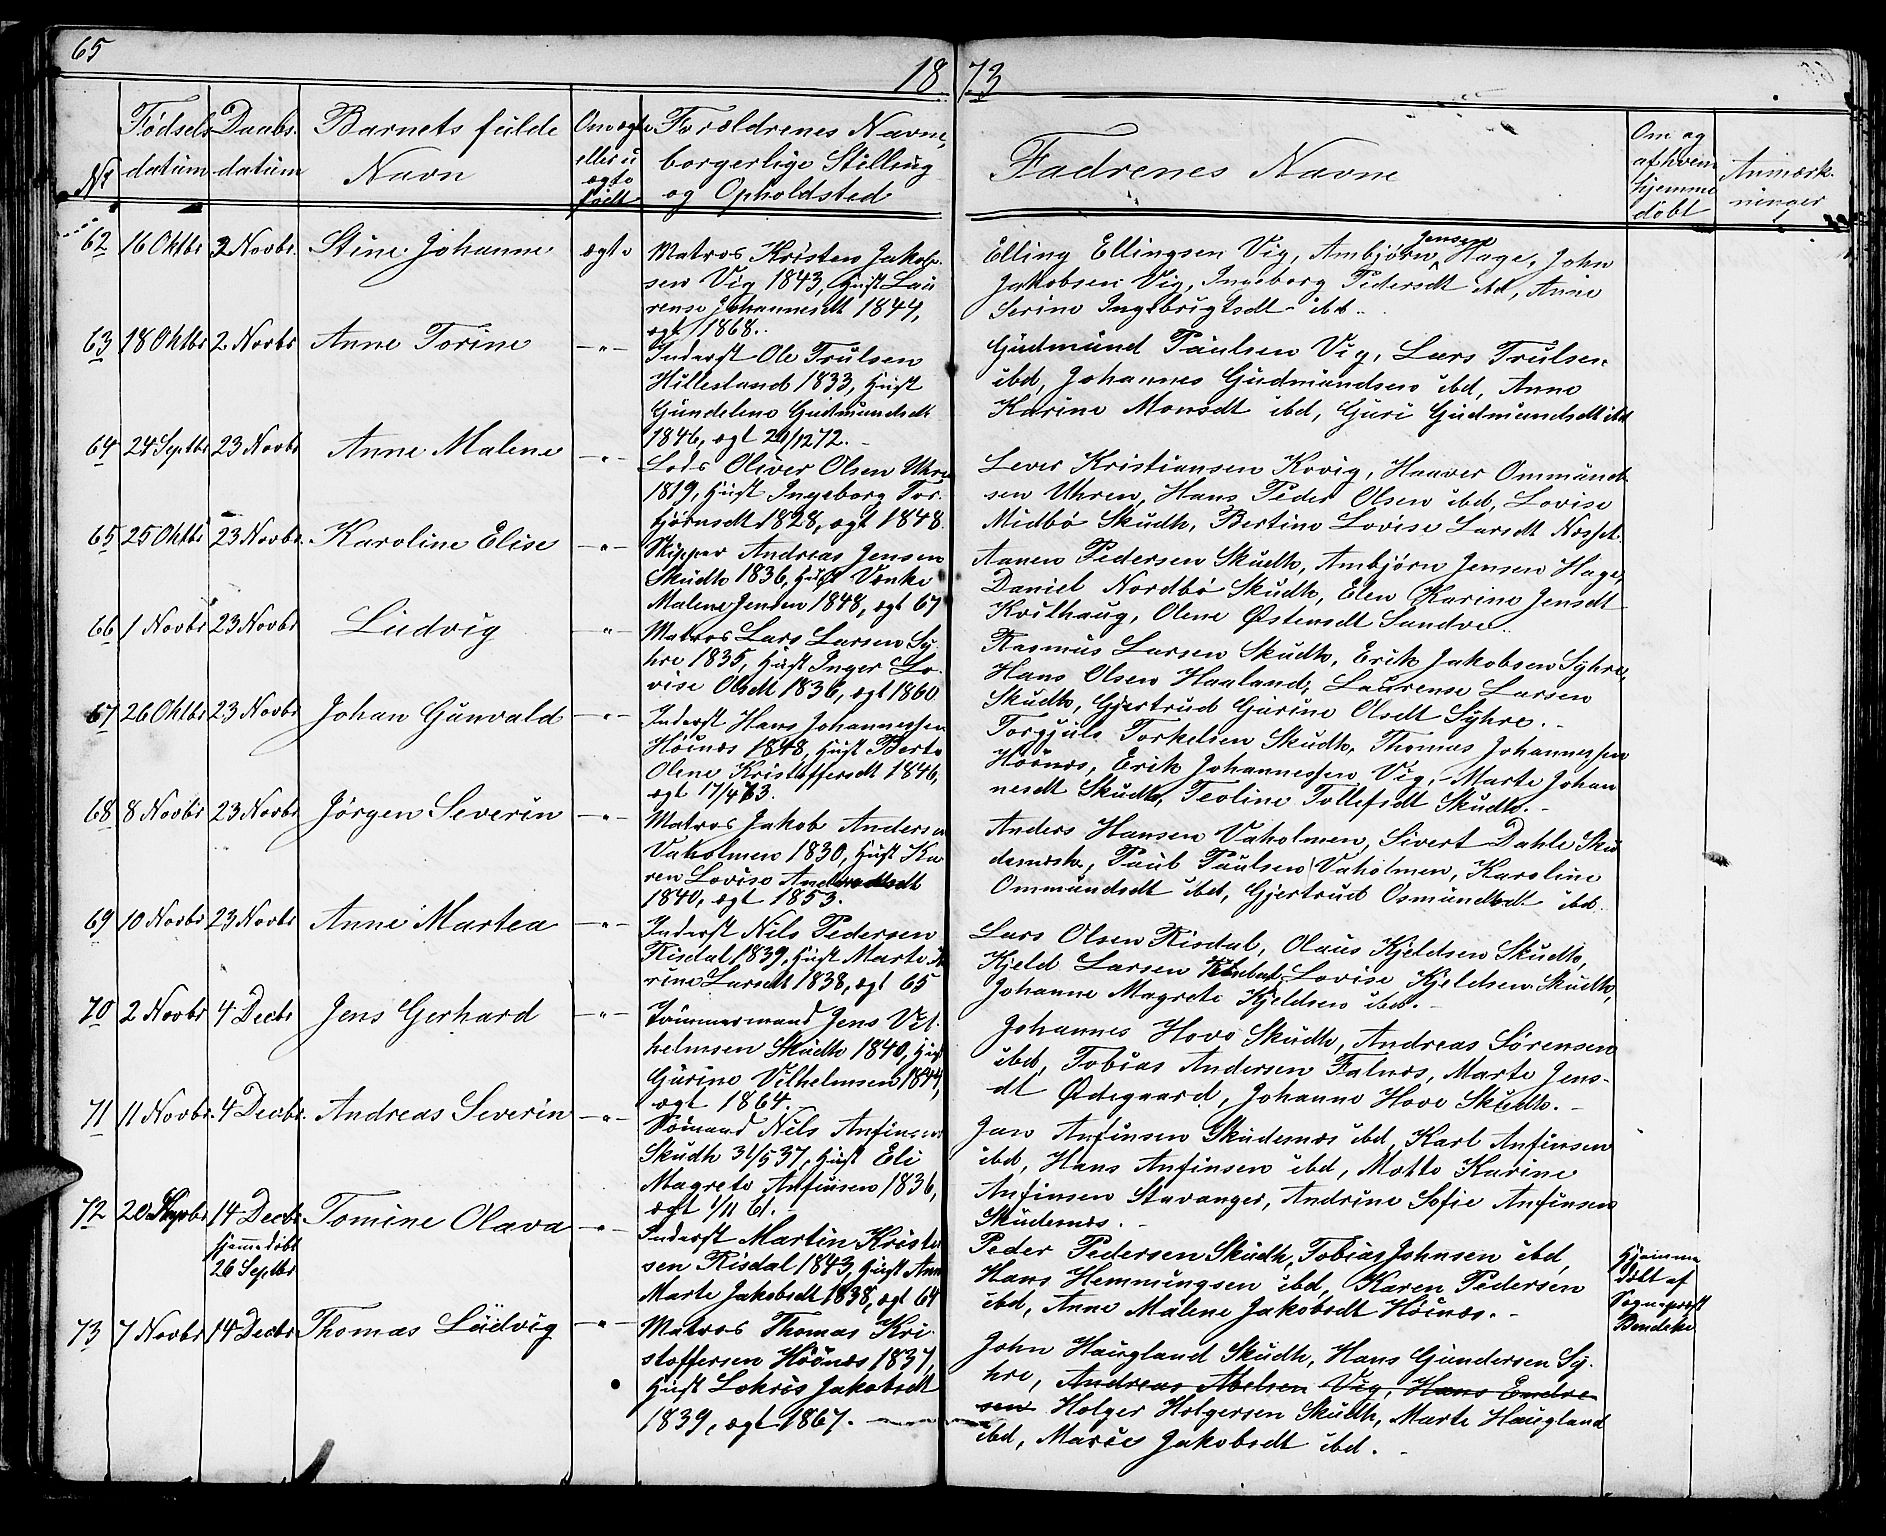 65
1873
No
Fødsels datum
Daabs datum
Barnets fulde Navn
Om ægte eller uægte født
Forældrenes Navne, borgerlige Stilling og Opholdsted
Fadrenes Navne
Om og af hvem hjemme døbt
Anmærkninger
62 16 Oktbr 2 Novbr. Stine Johanne ægte
Matros Kristen Jakob-
sen Vig 1843, Hust Lau
rense Johannesdt 1844,
ægt 1868.
Elling Ellingsen Vig, Ambjørn Jensen Hage, John
Jakobsen Vig, Ingeborg Pedersdt ibd, Anne
Serine Ingebrigtsdt ibd.
63 18 Oktbr 2 Novbr Anne Torine -"-
Inderst Ole Trulsen
Hillesland 1833, Hust
Gundeline Gudmundsdt
1846, ægt 29/12 72.
Gudmund Paulsen Vig, Lars Trulsen
ibd, Johannes Gudmundsen ibd, Anne
Karine Monsdt ibd, Guri Gudmundsdt ibd
64 24 Septbr 23 Novbr Anne Malene -"-
Lods Oliver Olsen Uhre
1819, Hust Ingeborg Tor-
bjørnsdt 1828, ægt 1848.
Lever Kristiansen Kvig, Haaver Ommund
sen Uhren, Hans Peder Olsen ibd, Lovise
Midbø Skudh, Bertine Lovise Larsdt
65 25 Oktbr 23 Novbr. Karoline Elise -"-
Skipper Andreas Jensen
Skudh 1836, Hust Venke
Malene Jensen 1848, ægt 67
Aanen Pedersen Skudh, Ambjørn Jensen Hage,
Daniel Nordbø Skudh, Elen Karine Jensdt
Kvilhaug, Olene Østensdt Sandve.
66 1 Novbr 23 Novbr Ludvig -"-
Matros Lars Larsen Sy
hre 1835, Hust Inger Lo-
vise Olsdt 1836, ægt 1860
Rasmus Larsen Skudh, Erik Jakobsen Syhre,
Hans Olsen Haaland, Laurense Larsen
Skudh, Gjertrud Gurine Olsdt Syhre.
67 26 Oktbr 23 Novbr Johan Gunvald -"-
Inderst Hans Johannessen
Høinæs 1848, Hust Berte
Olene Kristoffersdt 1846,
ægt 17/4 73.
Torgjuls Torkelsen Skudh, Thomas Johannessen
Høinæs, Erik Johannessen Vig, Marte Johan
nesdt Skudh, Teoline Tollefsdt Skudh.
68 8 Novbr 23 Novbr Jørgen Severin -"-
Matros Jakob Andersen
Vaholmen 1830, Hust Ka
ren Lovise Andersdt
1840, ægt 1853.
Anders Hansen Vaholmen, Sivert Dahle Sku
desnæsh, Paul Paulsen Vaholmen, Karoline
Ommundsdt ibd, Gjertrud Osmundsdt ibd.
69 10 Novbr 23 Novbr Anne Martea -"-
Inderst Nils Pedersen
Risdal 1839, Hust Marte
rine Larsdt 1838, ægt 65
Lars Olsen Risdal, Olaus Kjeldsen Skudh,
Kjeld Larsen Lovise Kjeldsen Skudh,
Johanne Magrete Kjeldsen ibd.
70 2 Novbr 4 Decbr Jens Gerhard -"-
Tømmermand Jens Vil-
helmsen Skudh 1840, Hust
Gurine Vilhelmsen 1844,
ægt 1864.
Johannes Hove Skudh, Andreas Sørensen
ibd, Tobias Andersen Falnæs, Marte Jens-
dt Ødegaard, Johanne Hove Skudh.
71 11 Novbr. 4 Decbr. Andreas Severin -"-
Sømand Nils Anfinsen
Skudh 31/5 37, Hust Eli
Magrete Anfinsen 1836,
ægt 1/11 61.
Jan Anfinsen Skudesnæs ibd, Karl Anfinsen
ibd, Hans Anfinsen ibd, Motte Karine
Anfinsen Stavanger, Andrine Sofie Anfinsen
Skudesnæs.
72 20 Septbr 14 Decbr Tomine Olava -"-
hjemmedøbt
26 Septbr
Inderst Martin Kristen
sen Risdal 1843, Hust Anne
Marte Jakobsdt 1838, ægt 64
Peder Pedersen Skudh, Tobias Johnsen ibd,
Hans Hemmingsen ibd, Karen Pedersen
ibd, Anne Malene Jakobsdt Høinæs.
Hjemme
døbt af
Sogneprest
Bendeke
73 7 Novbr 14 Decbr Thomas Ludvig -"-
Matros Thomas Kri-
stoffersen Høinæs 1837,
Hust Lokris Jakobsdt
1839, ægt 1867.
John Haugland Skudh, Hans Gundersen Sy-
hre, Andreas Abelsen Vig, Hans Endre
sen Holger Holgersen Skudh, Marte Haugland
ibd, Marie Jakobsdt ibd.